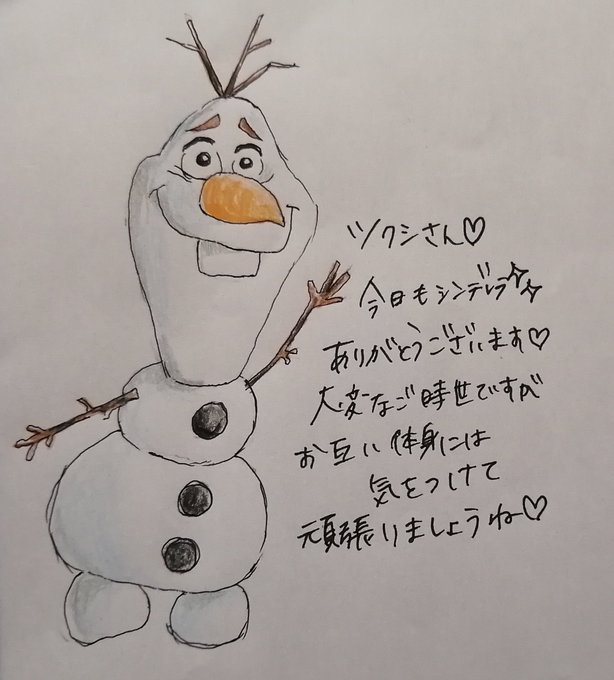 ツクシさん♡
今日もシンデレラ✨
ありがとうございます♡
大変なご時世ですが
お互い体身には
気をつけて
頑張りましょうね♡